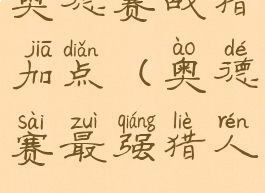 奥德赛战猎
jiā diǎn ào dé
加点(奥德
sài zuì qiáng liè rén
赛最强猎人